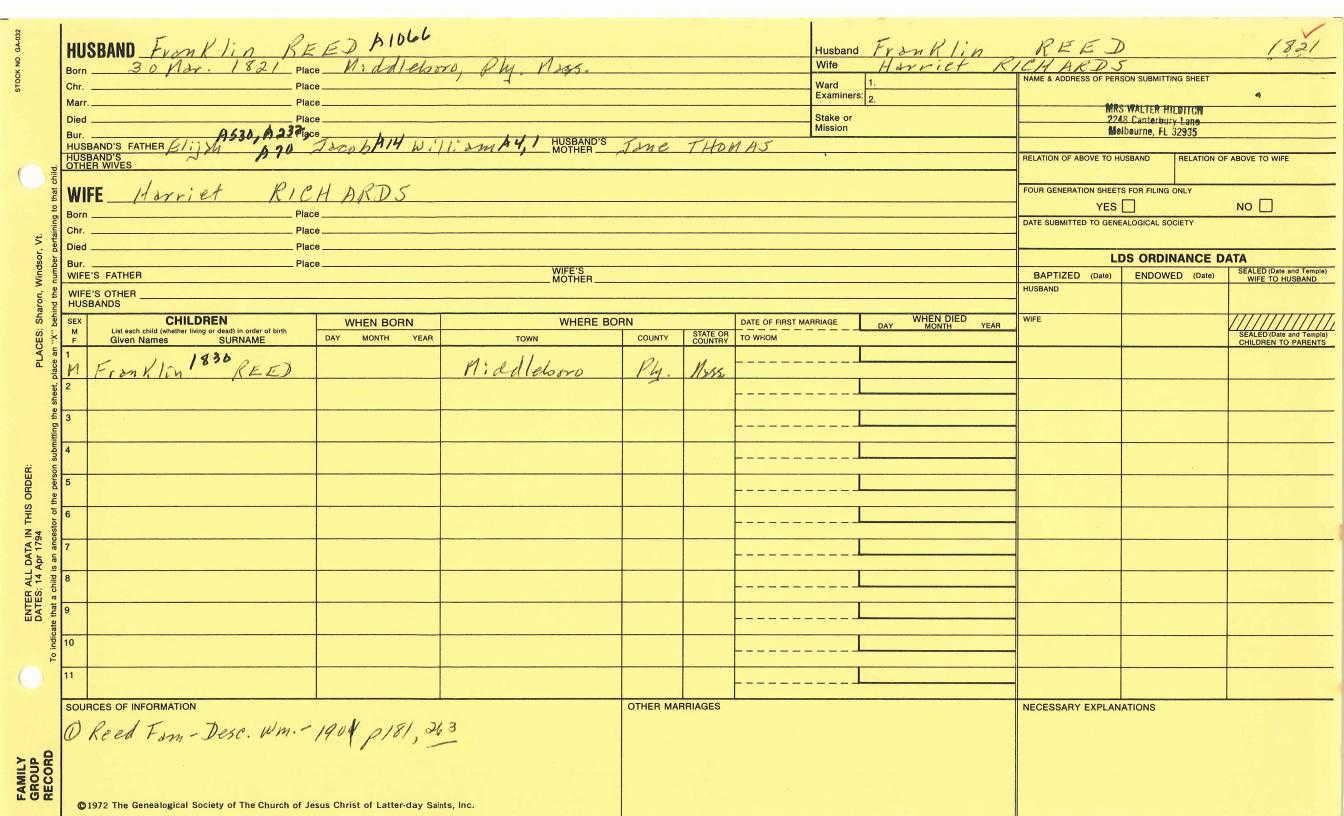 STOCK NO. GA-032
HUSBAND Franklin REED A1066
Born 30 Mar. 1821 Place Middleboro, Ply. Mass.
Chr. Place
Marr. Place
Died Place
Bur. A530, A237, Place
HUSBAND'S FATHER Elijah A70 Jacob A14 William A4,1 HUSBAND'S MOTHER Jane THOMAS
HUSBAND'S OTHER WIVES
Husband Franklin REED 1821
Wife Harriet RICHARDS
Ward Examiners: 1.
2.
Stake or Mission
NAME & ADDRESS OF PERSON SUBMITTING SHEET
MRS WALTER HILDITCH
2248 Canterbury Lane
Melbourne, FL 32935
RELATION OF ABOVE TO HUSBAND RELATION OF ABOVE TO WIFE
FOUR GENERATION SHEETS FOR FILING ONLY
YES NO
DATE SUBMITTED TO GENEALOGICAL SOCIETY
WIFE Harriet RICHARDS
Born Place
Chr. Place
Died Place
Bur. Place
WIFE'S FATHER WIFE'S MOTHER
WIFE'S OTHER HUSBANDS
LDS ORDINANCE DATA
BAPTIZED (Date) ENDOWED (Date) SEALED (Date and Temple) WIFE TO HUSBAND
HUSBAND
WIFE
SEALED (Date and Temple) CHILDREN TO PARENTS
SEX M F
CHILDREN
List each child (whether living or dead) in order of birth
Given Names SURNAME
WHEN BORN
DAY MONTH YEAR
WHERE BORN
TOWN COUNTY STATE OR COUNTRY
DATE OF FIRST MARRIAGE
TO WHOM
WHEN DIED
DAY MONTH YEAR
1 M Franklin 1830 REED Middleboro Ply. Mass
2
3
4
5
6
7
8
9
10
11
SOURCES OF INFORMATION
① Reed Fam- Desc. Wm.- 1901 p181, 263
OTHER MARRIAGES
NECESSARY EXPLANATIONS
©1972 The Genealogical Society of The Church of Jesus Christ of Latter-day Saints, Inc.
FAMILY GROUP RECORD
ENTER ALL DATA IN THIS ORDER:
DATES: 14 Apr 1794
PLACES: Sharon, Windsor, Vt.
To indicate that a child is an ancestor of the person submitting the sheet, place an "X" behind the number pertaining to that child.